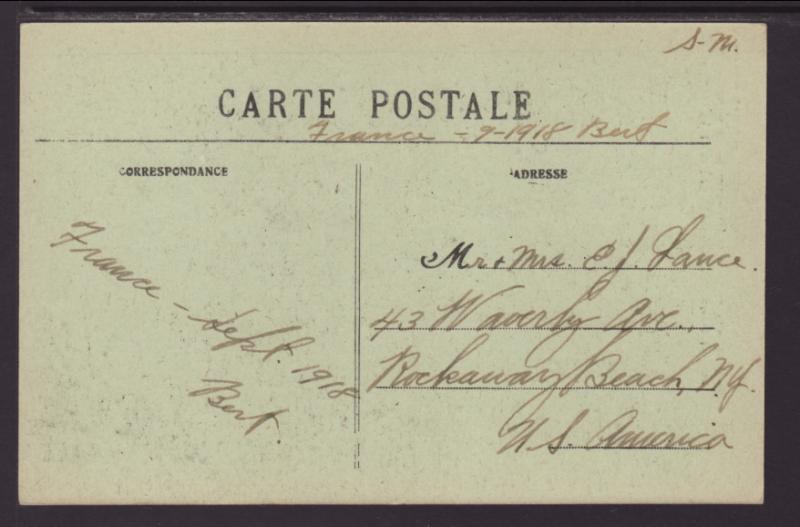 S-M.
CARTE POSTALE
France - 9-1918 Bert
CORRESPONDANCE
ADRESSE
France - Sept. 1918
Bert.
Mr + Mrs. E J. Lance.
43 Waverly Ave.,
Rockaway Beach, N.Y.
U.S. America